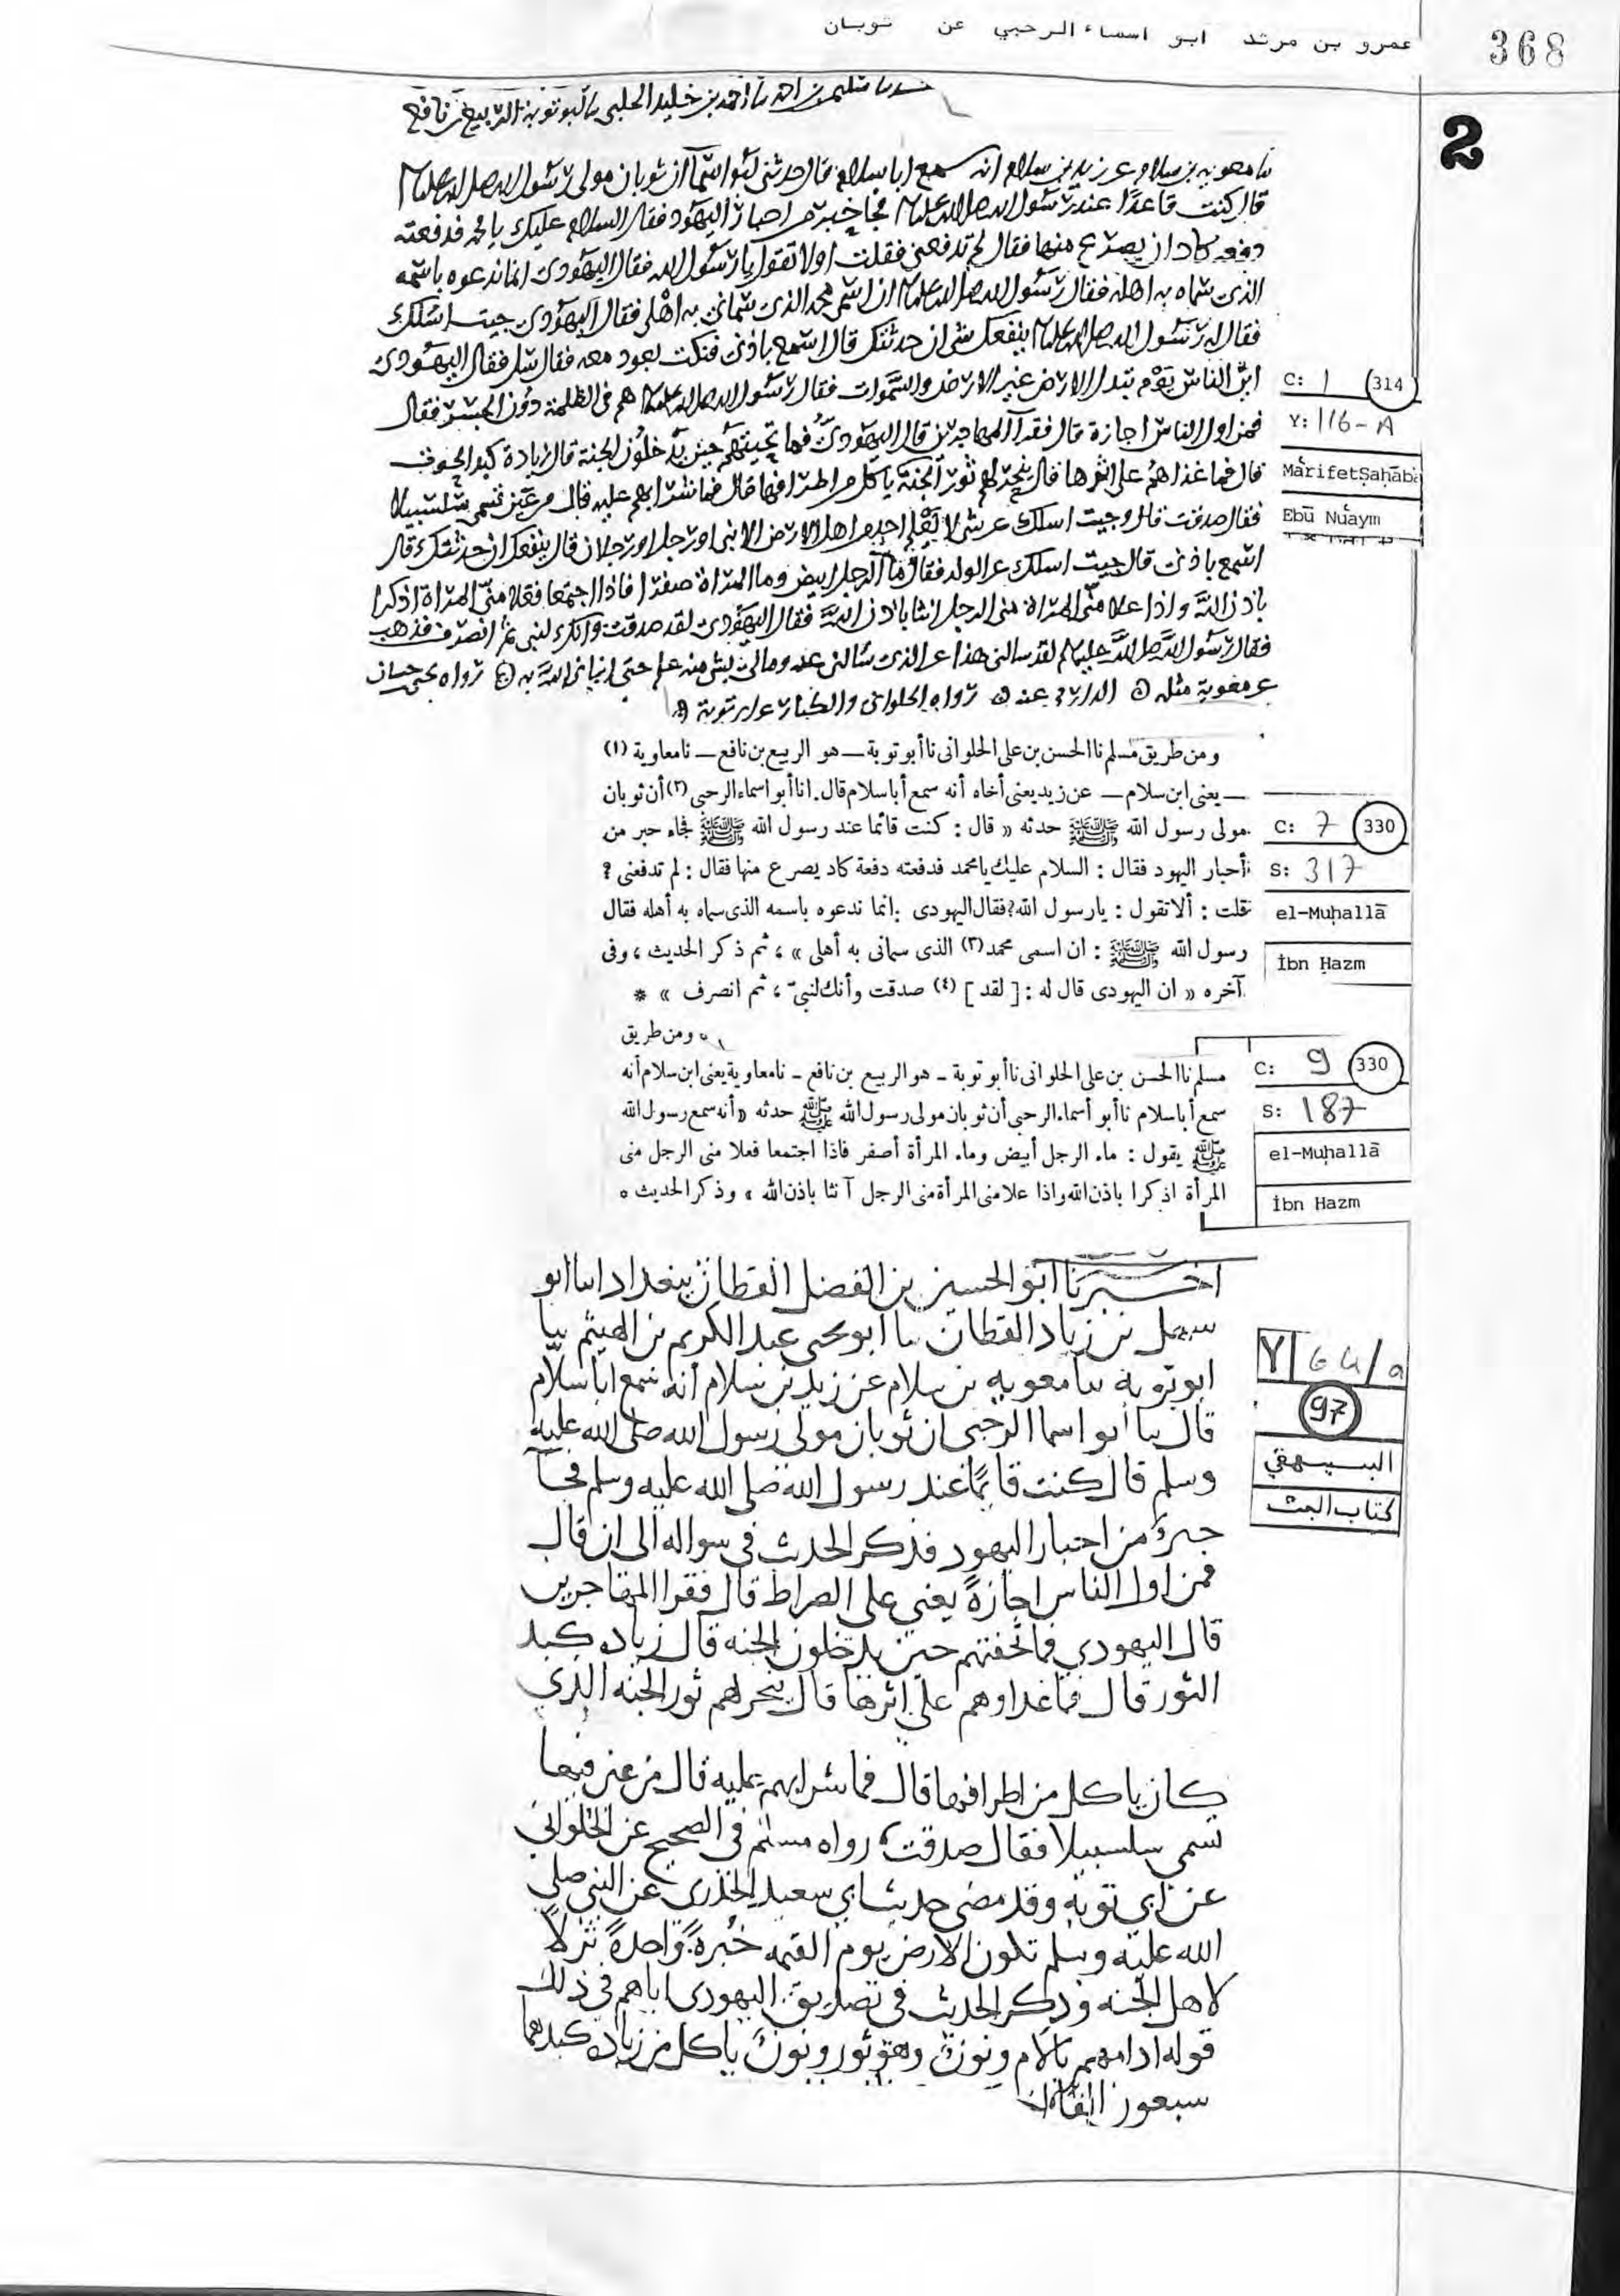 عمرو بن مرثد ابو اسماء الرحبي عن ثوبان
368
2
حدثنا سليمن بن احمد نا احمد بن خليد الحلبى نا ابو توبة الربيع بن نافع
نا معوية بن سلام عن زيد بن سلام انه سمع ابا سلام قال حدثنى ابو اسما ان ثوبان مولى رسول الله صلى الله عليه
قال كنت قاعدا عند رسول الله صلى الله عليه فجا حبر من احبار اليهود فقال السلام عليك يا محمد فدفعته
دفعه كاد ان يصرع منها فقال لم تدفعنى فقلت اولا تقول يا رسول الله فقال اليهودى انما ندعوه باسمه
الذى سماه به اهله فقال رسول الله صلى الله عليه ان اسمى محمد الذى سمانى به اهلى فقال اليهودى جيت اسلك
فقال له رسول الله صلى الله عليه ينفعك شى ان حدثتك قال اسمع باذنى فنكت بعود معه فقال سل فقال اليهودى
اين الناس يوم تبدل الارض غير الارض والسموات فقال رسول الله صلى الله عليه هم فى الظلمة دون الجسر فقال
فمن اول الناس اجازة قال فقرآ المهاجرين قال اليهودى فما تحيتهم حين يدخلون الجنة قال زيادة كبد الحوت
قال فما غذاهم على اثرها قال ينحر لهم ثور الجنة ياكل من اطرافها قال فما شرابهم عليه قال من عين تسمى سلسبيلا
فقال صدقت قال وجيت اسلك عن شى لا يعلمه احد من اهل الارض الا نبى او رجل او رجلان قال ينفعك ان حدثتك قال
اسمع باذنى قال جيت اسلك عن الولد فقال ما الرجل ابيض وما المراة صفرا فاذا اجتمعا فعلا منى المراة اذكرا
باذن الله واذا علا منى المراة منى الرجل انثا باذن الله فقال اليهودى لقد صدقت وانك لنبى ثم انصرف فذهب
فقال رسول الله صلى الله عليه لقد سالنى هذا عن الذى سالنى عنه ومالى بشى منه علم حتى انبانى الله به رواه يحيى بن حسان
عن معوية مثله الدارمى عنه رواه الحلوانى والكبار عن ابى توبة
C: 1 (314
Y: 116-A
MârifetṢaḥāba
Ebū Nuʿaym
ومن طريق مسلم نا الحسن بن على الحلوانى نا أبو توبة — هو الربيع بن نافع — نا معاوية (١)
— يعنى ابن سلام — عن زيد يعنى أخاه أنه سمع أبا سلام قال. انا أبو اسماء الرحبى (٢) أن ثوبان
مولى رسول الله ﷺ حدثه « قال : كنت قائما عند رسول الله ﷺ فجاء حبر من
أحبار اليهود فقال : السلام عليك يا محمد فدفعته دفعة كاد يصرع منها فقال : لم تدفعنى ؟
فقلت : ألا تقول : يا رسول الله؟ فقال اليهودى : انما ندعوه باسمه الذى سماه به أهله فقال
رسول الله ﷺ : ان اسمى محمد (٣) الذى سمانى به أهلى » ، ثم ذكر الحديث ، وفى
آخره « ان اليهودى قال له : [ لقد ] (٤) صدقت وأنك لنبىّ ، ثم انصرف » *
C: 7 (330)
S: 317
el-Muḥallā
İbn Ḥazm
ومن طريق
مسلم نا الحسن بن على الحلوانى نا أبو توبة - هو الربيع بن نافع - نا معاوية يعنى ابن سلام أنه
سمع أبا سلام نا أبو أسماء الرحبى أن ثوبان مولى رسول الله ﷺ حدثه « أنه سمع رسول الله
ﷺ يقول : ماء الرجل أبيض وماء المرأة أصفر فاذا اجتمعا فعلا منى الرجل منى
المرأة اذكرا باذن الله واذا علا منى المرأة منى الرجل آنثا باذن الله » وذكر الحديث ه
C: 9 (330)
S: 187
el-Muḥallā
İbn Hazm
اخبرنا ابو الحسين بن الفضل القطان ببغداد انا ابو
سهل بن زياد القطان نا ابو يحيى عبد الكريم بن الهيثم نا
ابو توبه نا معويه بن سلام عن زيد بن سلام أنه سمع ابا سلام
قال نا ابو اسما الرحبى ان ثوبان مولى رسول الله صلى الله عليه
وسلم قال كنت قايمًا عند رسول الله صلى الله عليه وسلم فجآ
حبرٌ من احبار اليهود فذكر الحديث فى سواله الى ان قال
فمن اول الناس اجازةً يعني على الصراط قال فقرا المهاجرين
قال اليهودي فما تحفتهم حين يدخلون الجنه قال زياده كبد
الثور قال فما غداوهم على اثرها قال ينحر لهم ثور الجنه الذي
كان ياكل من اطرافها قال فما شرابهم عليه قال من عين فيها
تسمى سلسبيلا فقال صدقت رواه مسلم فى الصحيح عن الحلواني
عن ابى توبه وقد مضى حديث ابي سعيد الخدرى عن النبى صلى
الله عليه وسلم تكون الارض يوم القيمه خبزةً واحدةً نزلاً
لاهل الجنه وذكر الحديث فى تصديق اليهودى اياهم فى ذلك
قوله ادامهم بالام ونون وهو ثور ونون ياكل من زياده كبدهما
سبعون الفا
Y 64/a
97
البيهقي
كتاب البعث